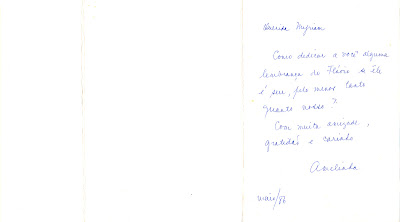 Querida Myriam
Como dedicar a você alguma
lembrança do Flávio se êle
é seu, pelo menos tanto
quanto nosso?
Com muita amizade,
gratidão e carinho
maio/86